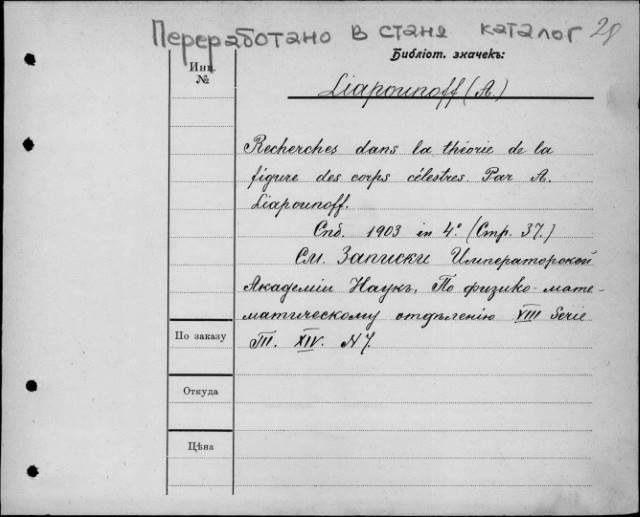 Переработано в стая каталог 28
Библіот. значекъ:
Инв.
№
Liapounoff (A.)
Recherches dans la théorie de la
figure des corps célestres. Par A.
Liapounoff.
Спб. 1903 in 4º. (Стр. 37.)
См. Записки Императорской
Академіи Наукъ, По физико-мате-
матическому отдѣленію VIII Serie
По заказу
Т. XIV. N 7.
Откуда
Цѣна